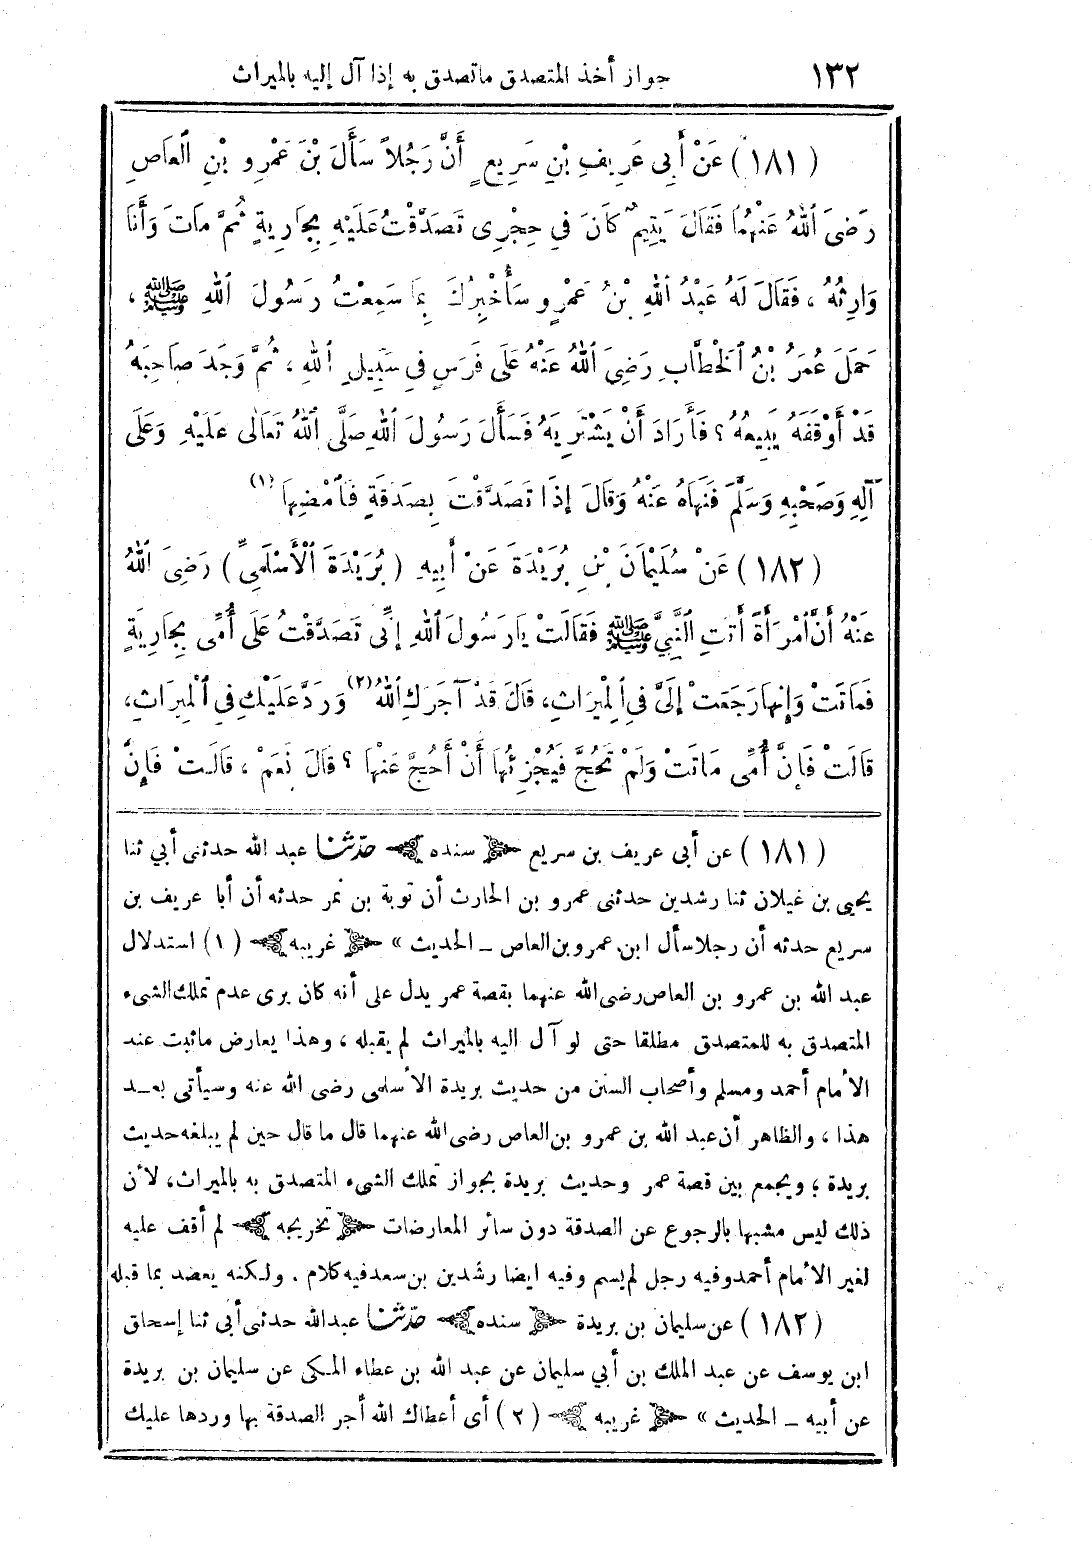 ١٣٢ جواز أخذ المتصدق ماتصدق به إذا آل إليه بالميراث
(١٨١) عَنْ أَبِى عَرِيفِ بْنِ سَرِيعٍ أَنَّ رَجُلاً سَأَلَ بْنَ عَمْرِو بْنِ الْعَاصِ
رَضِىَ اللهُ عَنْهُمَا فَقَالَ يَتِيمٌ كَانَ فِى حِجْرِى تَصَدَّقْتُ عَلَيْهِ بِجَارِيةٍ ثُمَّ مَاتَ وَأَنَا
وَارِثُهُ ، فَقَالَ لَهُ عَبْدُ اللهِ بْنُ عَمْرٍو سَأُخْبِرُكَ بِمَا سَمِعْتُ رَسُولَ اللهِ ﷺ ،
حَمَلَ عُمَرُ بْنُ الْخَطَّابِ رَضِىَ اللهُ عَنْهُ عَلَى فَرَسٍ فِى سَبِيلِ اللهِ ، ثُمَّ وَجَدَ صَاحِبَهُ
قَدْ أَوْقَفَهُ يَبِيعُهُ ؟ فَأَرَادَ أَنْ يَشْتَرِيَهُ فَسَأَلَ رَسُولَ اللهِ صَلَّى اللهُ تَعَالَى عَلَيْهِ وَعَلَى
آلِهِ وَصَحْبِهِ وَسَلَّمَ فَنَهَاهُ عَنْهُ وَقَالَ إِذَا تَصَدَّقْتَ بِصَدَقَةٍ فَأَمْضِهَا (١)
(١٨٢) عَنْ سُلَيْمَانَ بْنِ بُرَيْدَةَ عَنْ أَبِيهِ (بُرَيْدَةَ الْأَسْلَمِىِّ) رَضِىَ اللهُ
عَنْهُ أَنَّ امْرَأَةً أَتَتِ النَّبِىَّ ﷺ فَقَالَتْ يَارَسُولَ اللهِ إِنِّى تَصَدَّقْتُ عَلَى أُمِّى بِجَارِيَةٍ
فَمَاتَتْ وَإِنهَا رَجَعَتْ إِلَىَّ فِى الْمِيرَاثِ، قَالَ قَدْ آجَرَكِ اللهُ (٢) وَرَدَّ عَلَيْكِ فِى الْمِيرَاثِ،
قَالَتْ فَإِنَّ أُمِّى مَاتَتْ وَلَمْ تَحُجَّ فَيُجْزِئُهَا أَنْ أَحُجَّ عَنْهَا ؟ قَالَ نَعَمْ ، قَالَتْ فَإِنَّ
(١٨١) عن أبى عريف بن سريع ﴿ سنده ﴾ حدّثنا عبد الله حدثنى أبي ثنا
يحيى بن غيلان ثنا رشدين حدثنى عمرو بن الحارث أن توبة بن نمر حدثه أن أبا عريف بن
سريع حدثه أن رجلا سأل ابن عمرو بن العاص ــ الحديث » ﴿ غريبه ﴾ (١) استدلال
عبد الله بن عمرو بن العاص رضى الله عنهما بقصة عمر يدل على أنه كان يرى عدم تملك الشىء
المتصدق به للمتصدق مطلقا حتى لو آل اليه بالميراث لم يقبله ، وهذا يعارض ماثبت عند
الأمام أحمد ومسلم وأصحاب السنن من حديث بريدة الأسلمى رضى الله عنه وسيأتى بعــد
هذا ، والظاهر أن عبد الله بن عمرو بن العاص رضى الله عنهما قال ما قال حين لم يبلغه حديث
بريدة ؛ ويجمع بين قصة عمر وحديث بريدة بجواز تملك الشىء المتصدق به بالميراث، لأن
ذلك ليس مشبها بالرجوع عن الصدقة دون سائر المعارضات ﴿ تخريجه ﴾ لم أقف عليه
لغير الأمام أحمد وفيه رجل لم يسم وفيه ايضا رشدين بن سعد فيه كلام . ولكنه يعضد بما قبله
(١٨٢) عن سليمان بن بريدة ﴿ سنده ﴾ حدّثنا عبد الله حدثنى أبى ثنا إسحاق
ابن يوسف عن عبد الملك بن أبي سليمان عن عبد الله بن عطاء المكى عن سليمان بن بريدة
عن أبيه ــ الحديث » ﴿ غريبه ﴾ (٢) أى أعطاك الله أجر الصدقة بها وردها عليك